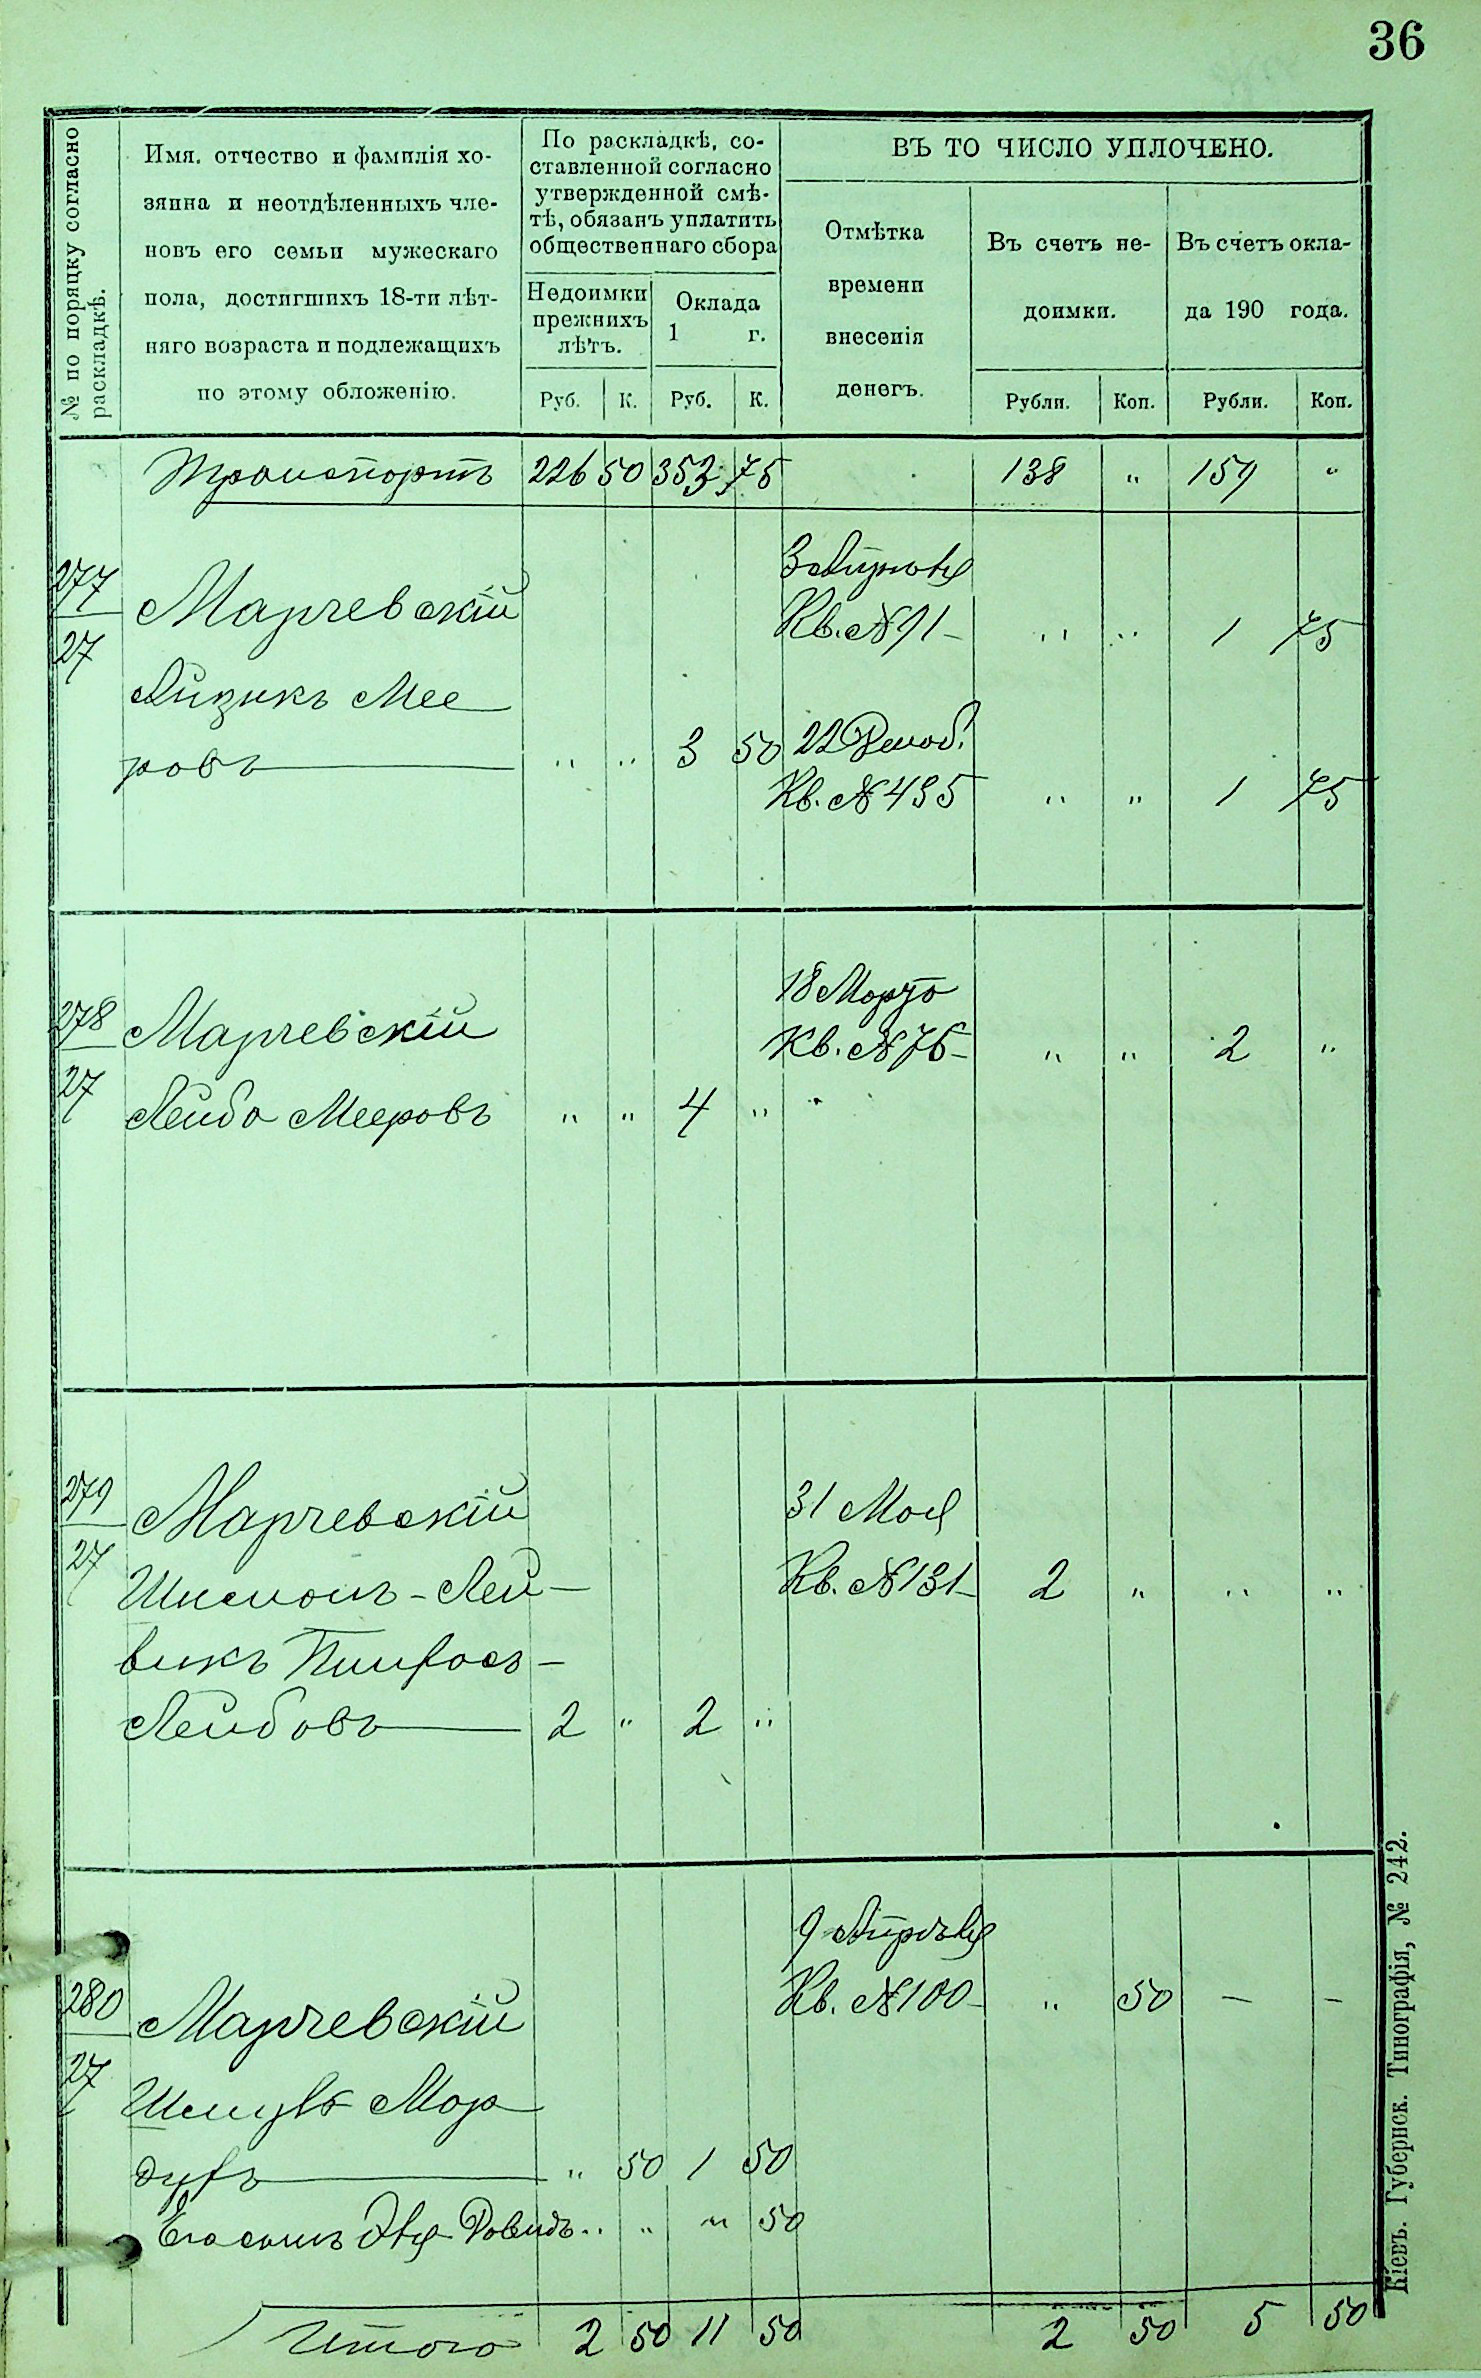 36
№ по порядку согласно раскладкѣ.
Имя, отчество и фамилія хо-
зяина и неотдѣленныхъ чле-
новъ его семьи мужескаго
пола, достигшихъ 18-ти лѣт-
няго возраста и подлежащихъ
по этому обложенію.
По раскладкѣ, со-
ставленной согласно
утвержденной смѣ-
тѣ, обязанъ уплатить
общественнаго сбора
Недоимки
прежнихъ
лѣтъ.
Оклада
1 г.
Руб. К. Руб. К.
ВЪ ТО ЧИСЛО УПЛОЧЕНО.
Отмѣтка
времени
внесенія
денегъ.
Въ счетъ не-
доимки.
Въ счетъ окла-
да 190 года.
Рубли. Коп. Рубли. Коп.
Транспортъ 226 50 353 75 138 " 159 "
277
27
Марчевскій
Айзикъ Мее
ровъ " " 3 50
Кв. №91 " " 1 75
22
Кв. №435 " " 1 75
278
27
Марчевскій
Лейба Мееровъ " " 4 "
18 Марта
Кв. №76 " " 2 "
279
27
Марчевскій
Шимонъ-Лей-
викъ Пинхасъ-
Лейбовъ 2 " 2 "
31 Мая
Кв. №131 2 " " "
280
27
Марчевскій
Шмуль Мор
духъ " 50 1 50
Его сынъ Эля Довидъ " " " 50
9 Апрѣля
Кв. №100 " 50 - -
Итого 2 50 11 50 2 50 5 50
Кіевъ. Губернск. Типографія, № 242.